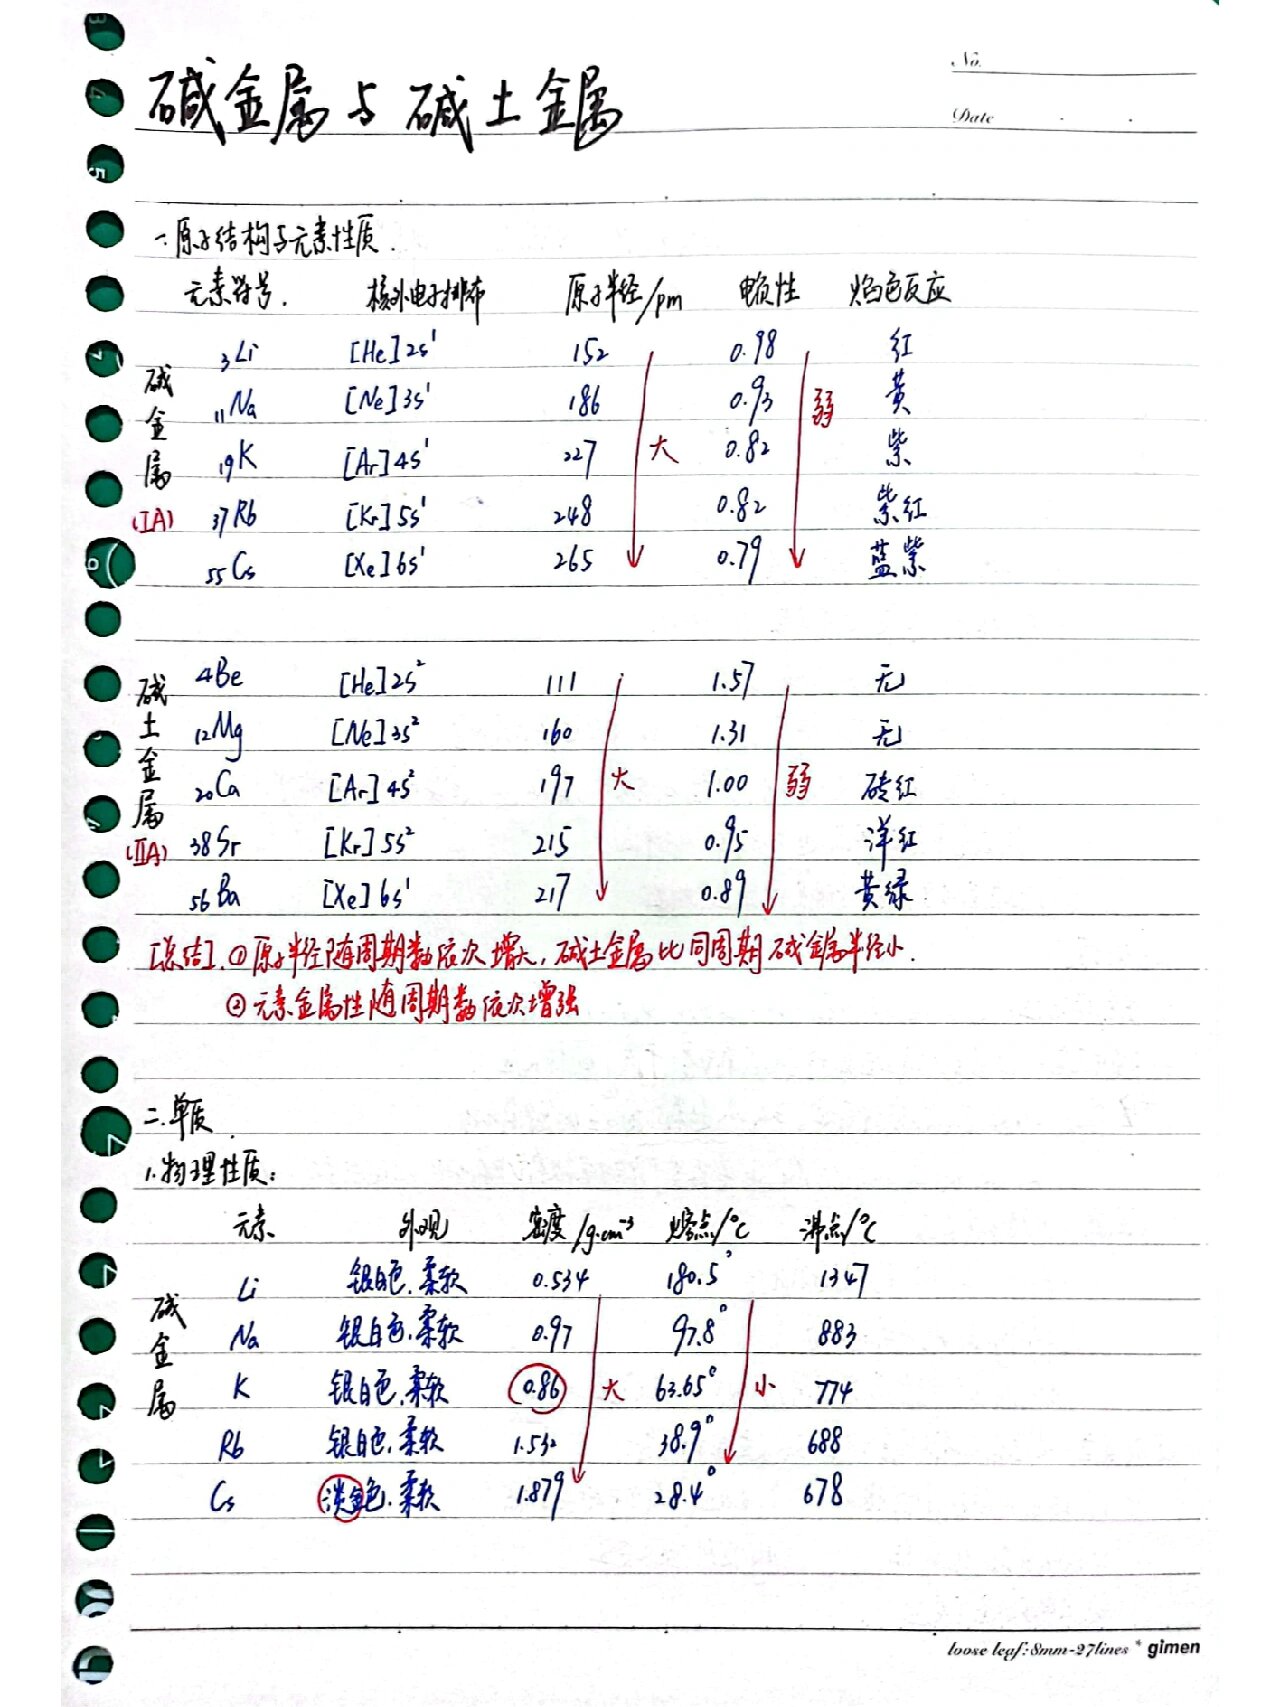 No.
碱金属与碱土金属
Date
一.原子结构与元素性质.
元素符号. 核外电子排布 原子半径/pm 电负性 焰色反应
碱金属
(IA)
₃Li [He]2s¹ 152 0.98 红
₁₁Na [Ne]3s¹ 186 0.93 黄
₁₉K [Ar]4s¹ 227 0.82 紫
₃₇Rb [Kr]5s¹ 248 0.82 紫红
₅₅Cs [Xe]6s¹ 265 0.79 蓝紫
大 弱
碱土金属
(IIA)
₄Be [He]2s² 111 1.57 无
₁₂Mg [Ne]3s² 160 1.31 无
₂₀Ca [Ar]4s² 197 1.00 砖红
₃₈Sr [Kr]5s² 215 0.95 洋红
₅₆Ba [Xe]6s¹ 217 0.89 黄绿
大 弱
[总结].①原子半径随周期数依次增大,碱土金属比同周期碱金属半径小.
②元素金属性随周期数依次增强
二.单质
1.物理性质:
元素 外观 密度/g·cm⁻³ 熔点/℃ 沸点/℃
碱金属
Li 银白色.柔软 0.534 180.5° 1347
Na 银白色.柔软 0.97 97.8° 883
K 银白色.柔软 0.86 63.65° 774
Rb 银白色.柔软 1.532 38.9° 688
Cs 淡金色.柔软 1.879 28.4° 678
大 小
loose leaf:8mm-27lines * gimen